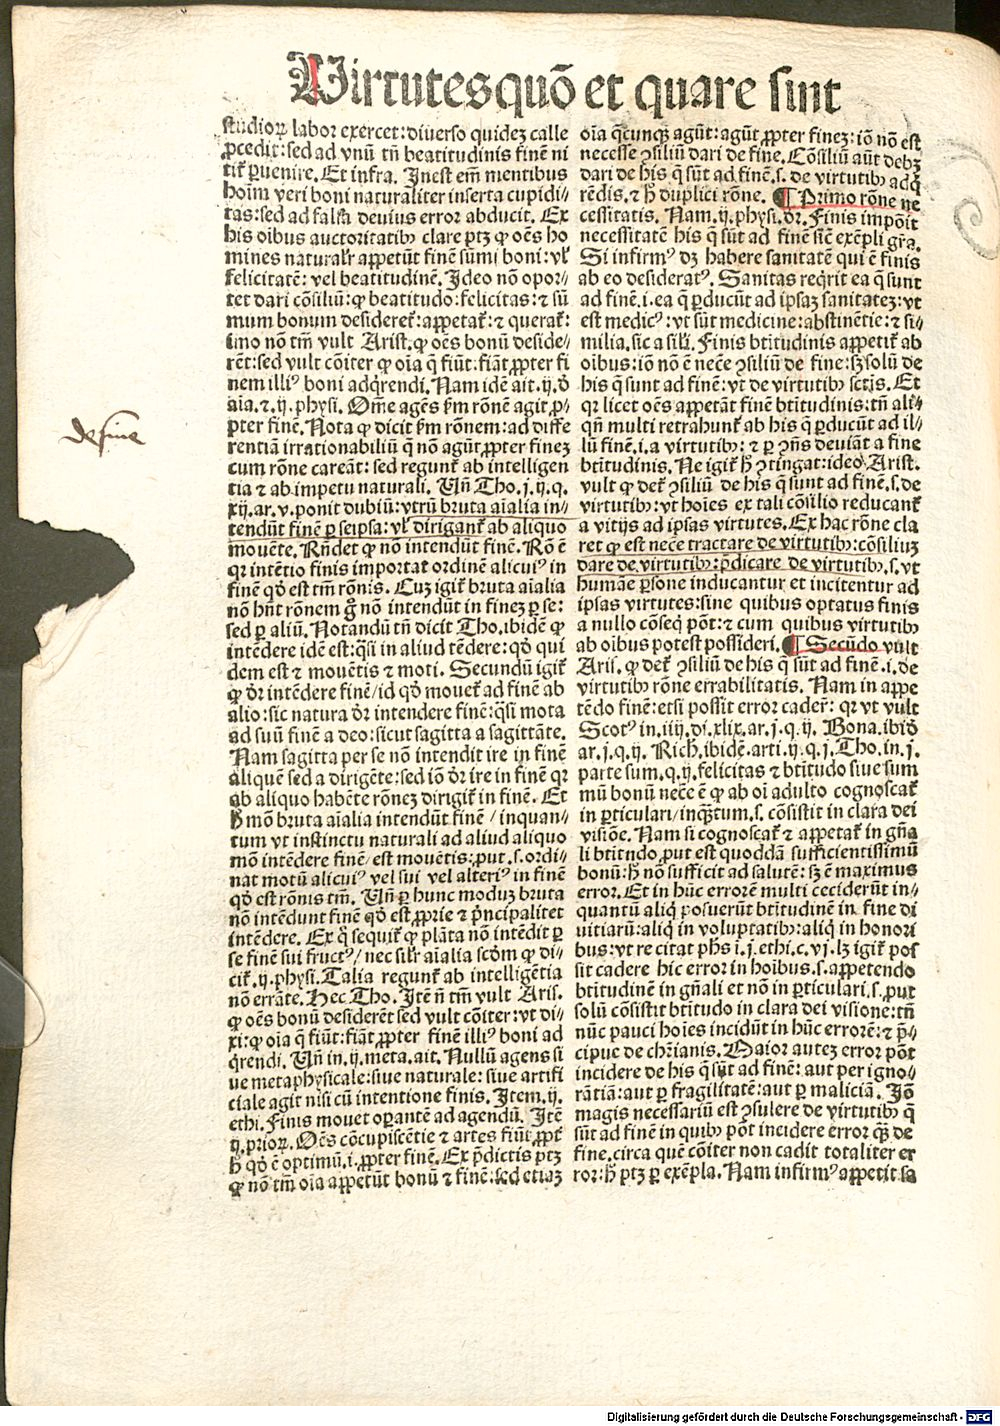 Uirtutes quō et quare sint
studioꝝ labor exercet: diuerso quideꝫ calle
ꝓcedit: sed ad vnū tñ beatitudinis finē ni
titꝛ ꝑuenire. Et infra. Inest em̄ mentibus
hoim̄ veri boni naturaliter inserta cupidi⸗
tas: sed ad falsa deuius error abducit. Ex
his oībus auctoritatibꝰ clare ptꝫ ꝙ oēs ho
mines naturalr̄ appetūt finē sūmi boni: vl̓
felicitatē: vel beatitudinē. Ideo nō opor⸗
tet dari cōsiliū: ꝙ beatitudo: felicitas: ⁊ sū
mum bonum desideretꝛ: appetatꝛ: ⁊ queratꝛ:
imo nō tm̄ vult Arist. ꝙ oēs bonū deside⸗
rēt: sed vult cōiter ꝙ oīa q̄ fiūt: fiāt ꝓpter fi
nem illiꝰ boni adq̄rendi. Nam idē ait. ij. d̄
aīa. ⁊. ij. physi. Om̄e agēs ẜm rōnē agit ꝓ⸗
pter finē. Nota ꝙ dicit ẜm rōnem: ad diffe
rentiā irrationabiliū q̄ nō agūt ꝓpter fineꝫ
cum rōne careāt: sed reguntꝛ ab intelligen
tia ⁊ ab impetu naturali. Un̄ Tho. j. ij. q.
xij. ar. v. ponit dubiū: vtrū bruta aīalia in⸗
tendūt finē ꝑ seipsa: vl̓ dirigantꝛ ab aliquo
mouēte. Rn̄det ꝙ nō intendūt finē. Rō ē
qꝛ intētio finis importat ordinē alicuiꝰ in
finē qd̓ est tm̄ rōnis. Cuꝫ igitꝛ bruta aīalia
nō hn̄t rōnem g̊ nō intendūt in fineꝫ ꝑ se:
sed ꝑ aliū. Notandū tn̄ dicit Tho. ibidē ꝙ
intēdere idē est: q̄si in aliud tēdere: qd̓ qui
dem est ⁊ mouētis ⁊ moti. Secundū igitꝛ
ꝙ dr̄ intēdere finē / id qd̓ mouetꝛ ad finē ab
alio: sic natura dr̄ intendere finē: q̄si mota
ad suū finē a deo: sicut sagitta a sagittāte.
Nam sagitta per se nō intendit ire in finē
aliquē sed a dirigēte: sed iō dr̄ ire in finē qꝛ
ab aliquo habēte rōneꝫ dirigitꝛ in finē. Et
h̊ mō bruta aīalia intendūt finē / inquan⸗
tum vt instinctu naturali ad aliud aliquo
mō intēdere finē / est mouētis: put. s. ordi⸗
nat motū alicuiꝰ vel sui vel alteriꝰ in finē
qd̓ est rōnis tm̄. Un̄ ꝑ hunc moduꝫ bruta
nō intēdunt finē qd̓ est ꝓprie ⁊ pn̄cipalitet
intēdere. Ex q̊ sequitꝛ ꝙ plāta nō intēdit ꝑ
se finē sui fructꝰ / nec silr̄ aīalia scd̓m ꝙ di⸗
citꝛ. ij. physi. Talia reguntꝛ ab intelligētia
nō errāte. Hec Tho. Itē n̄ tm̄ vult Aris.
ꝙ oēs bonū desiderēt sed vult cōiter: vt di⸗
xi: ꝙ oīa q̄ fiūt: fiāt ꝓpter finē illiꝰ boni ad
q̄rendi. Un̄ in. ij. meta. ait. Nullū agens si
ue metaphysicale: siue naturale: siue artifi
ciale agit nisi cū intentione finis. Item. ij.
ethi. Finis mouet oꝑantē ad agendū. Itē
ij. prioꝝ. Oēs cōcupiscētie ⁊ artes fiūt ꝓpt̄
h̊ qd̓ ē optimū. i. ꝓpter finē. Ex p̄dictis ptꝫ
ꝙ nō tm̄ oīa appetūt bonū ⁊ finē: sed etiaꝫ
oīa q̄cunqꝫ agūt: agūt ꝓpter fineꝫ: iō nō est
necesse ↄsiliū dari de fine. Cōsiliū aūt debꝫ
dari de his q̄ sūt ad finē. s. de virtutibꝰ adq̄
rēdis. ⁊ h̊ duplici rōne. ¶ Primo rōne ne
cessitatis. Nam. ij. physi. dr̄. Finis impōit
necessitatē his q̄ sūt ad finē sic̄ exēpli gr̄a.
Si infirmꝰ dꝫ habere sanitatē qui ē finis
ab eo desideratꝰ. Sanitas reqͥrit ea q̄ sunt
ad finē. i. ea q̄ ꝑducūt ad ipsaꝫ sanitateꝫ: vt
est medicꝰ: vt sūt medicine: abstinētie: ⁊ si⸗
milia. sic a sil̓i. Finis btītudinis appetitꝛ ab
oībus: iō nō ē nec̄e ↄsiliū de fine: sꝫ solū de
his q̄ sunt ad finē: vt de virtutibꝰ sctīs. Et
qꝛ licet oēs appetāt finē btītudinis: tn̄ ali⸗
qn̄ multi retrahuntꝛ ab his q̄ ꝑducūt ad il⸗
lū finē. i. a virtutibꝰ: ⁊ ꝑ ↄn̄s deuiāt a fine
btītudinis. Ne igitꝛ h̊ ↄtingat: ideo Arist.
vult ꝙ detꝛ ↄsiliū de his q̄ sunt ad finē. s. de
virtutibꝰ: vt hoīes ex tali cōsilio reducantꝛ
a vitijs ad ipsas virtutes. Ex hac rōne cla
ret ꝙ est nec̄e tractare de virtutibꝰ: cōsiliuꝫ
dare de virtutibꝰ: p̄dicare de virtutibꝰ. s. vt
humāe ꝑsone inducantur et incitentur ad
ipsas virtutes: sine quibus optatus finis
a nullo cōseq̄ pōt: ⁊ cum quibus virtutibꝰ
ab oībus potest possideri. ¶ Secūdo vult
Aris. ꝙ detꝛ ↄsiliū de his q̄ sūt ad finē. i. de
virtutibꝰ rōne errabilitatis. Nam in appe
tēdo finē: etsi possit error cader̄: qꝛ vt vult
Scotꝰ in. iiij. di. xlix. ar. j. q. ij. Bona. ibid̓
ar. j. q. ij. Rich. ibidē. arti. ij. q. j. Tho. in. j.
parte sum. q. ij. felicitas ⁊ btītudo siue sum
mū bonū nec̄e ē ꝙ ab oī adulto cognoscatꝛ
in ꝑticulari / inq̄tum. s. cōsistit in clara dei
visiōe. Nam si cognoscatꝛ ⁊ appetatꝛ in gn̄a
li btītudo ꝓut est quoddā sufficientissimū
bonū: h̊ nō sufficit ad salutē: sꝫ ē maximus
error. Et in hūc errorē multi ceciderūt in⸗
quantū aliq̄ posuerūt btītudinē in fine di
uitiarū: aliq̄ in voluptatibꝰ: aliq̄ in honori
bus: vt recitat phs̄ i. j. ethi. c. vj. lꝫ igitꝛ pos
sit cadere hic error in hoībus. s. appetendo
btītudinē in gn̄ali et nō in ꝑticulari. s. ꝓut
solū cōsistit btītudo in clara dei visione: tn̄
nūc pauci hoīes incidūt in hūc errorē: ⁊ p̄⸗
cipue de chr̄ianis. Maior auteꝫ error pōt
incidere de his q̄ sūt ad finē: aut per igno⸗
rātiā: aut ꝑ fragilitatē: aut ꝑ maliciā. Iō
magis necessariū est ↄsulere de virtutibꝰ q̄
sūt ad finē in quibꝰ pōt incidere error qꝫ de
fine. circa quē cōiter non cadit totaliter er
ror: h̊ ptꝫ ꝑ exēpla. Nam infirmꝰ appetit sa
de fine
Digitalisierung gefördert durch die Deutsche Forschungsgemeinschaft - DFG